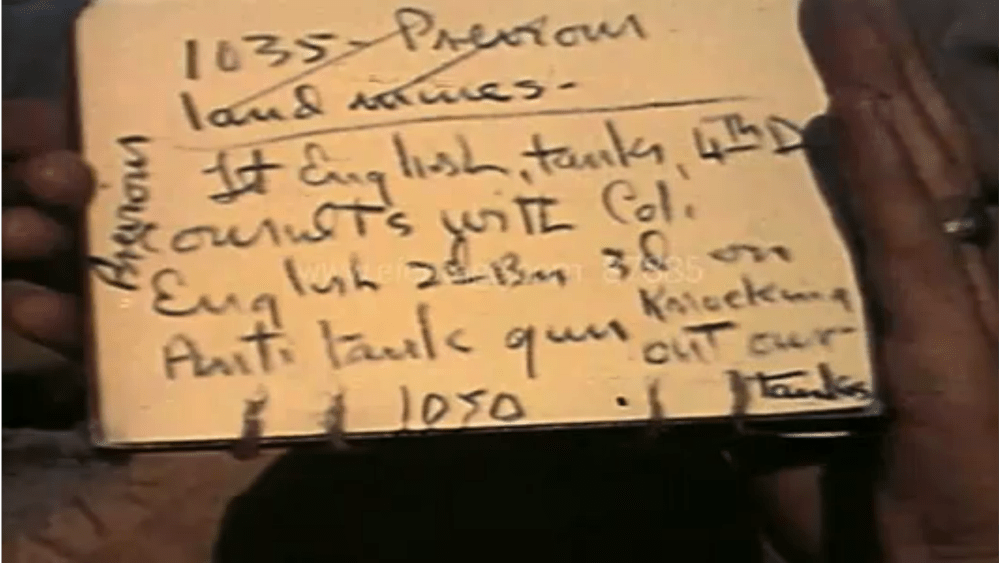 1035 - Previous
land mines -
Previous
Lt English, tanks, 4TH D
consults with Col.
English 2d Bn 3d on
Anti tank gun Knocking
out our
tanks
1050